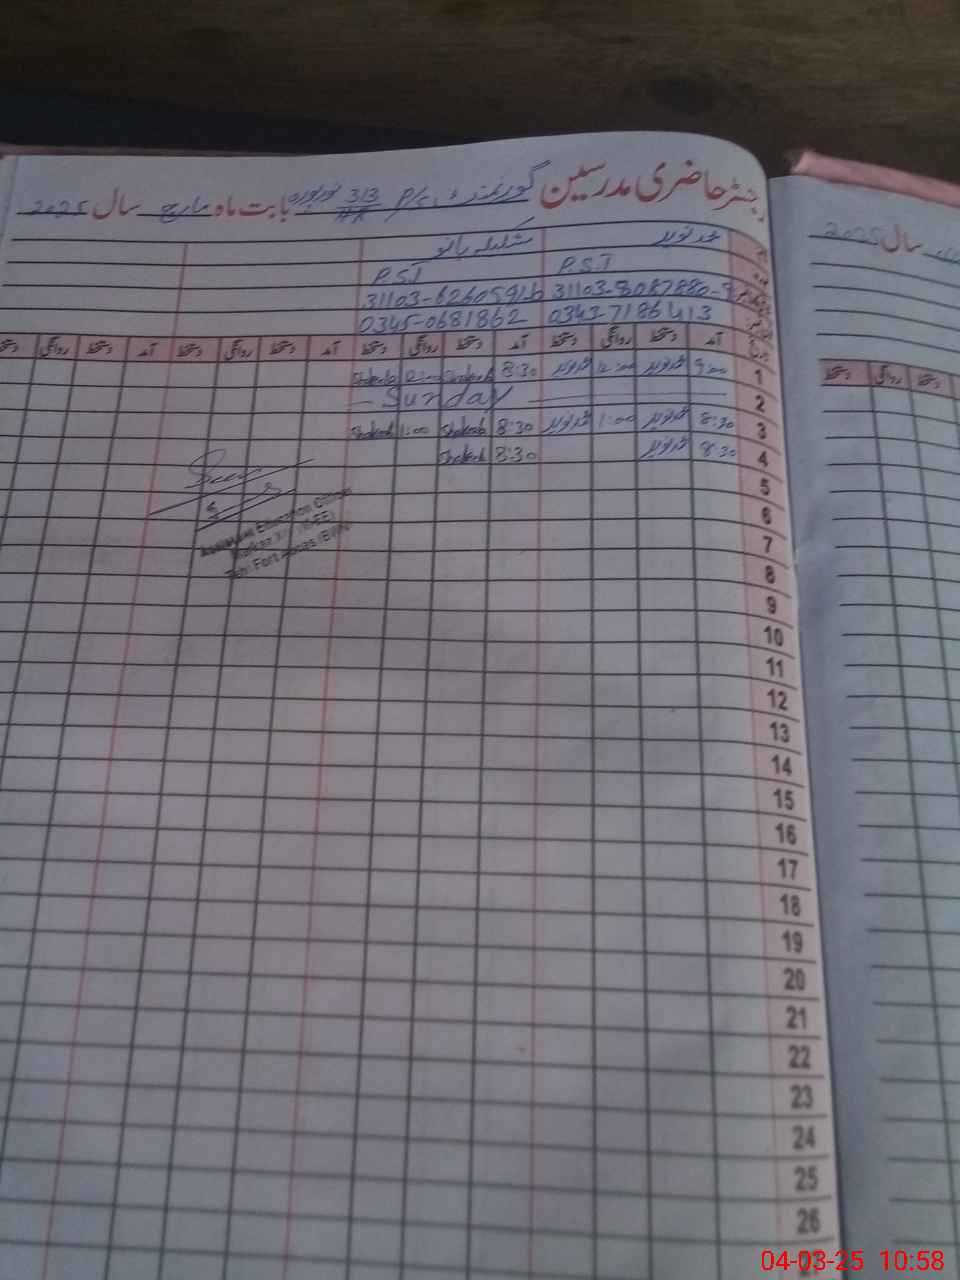 رجسٹر حاضری مدرسین گورنمنٹ P/S 313 بابت ماہ مارچ سال 2025
محمد نوید شکیلہ بانو
P.S.T P.S.T
31103-8087880-9 31103-6260591-6
0343-7186413 0345-0681862
آمد دستخط روانگی دستخط آمد دستخط روانگی دستخط آمد دستخط روانگی دستخط آمد دستخط روانگی دستخط
1 9:00 محمد نوید 12:00 محمد نوید 8:30 Shakeela 12:00 Shakeela
2 Sunday
3 8:30 محمد نوید 1:00 محمد نوید 8:30 Shakeela 1:00 Shakeela
4 8:30 محمد نوید 8:30 Shakeela
5
6
7
8
9
10
11
12
13
14
15
16
17
18
19
20
21
22
23
24
25
26
Assistant Education Officer
Markaz (M-EE)
Teh: Fort Abbas
سال 2025
دستخط روانگی دستخط
04-03-25 10:58